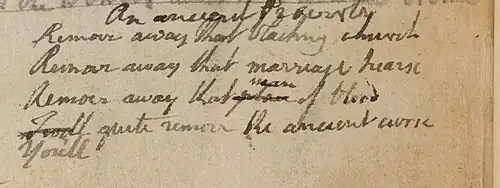 An ancient Proverb
Remove away that blackning church
Remove away that marriage hearse
man
Remove away that of blood
quite remove the ancient curse
You'll